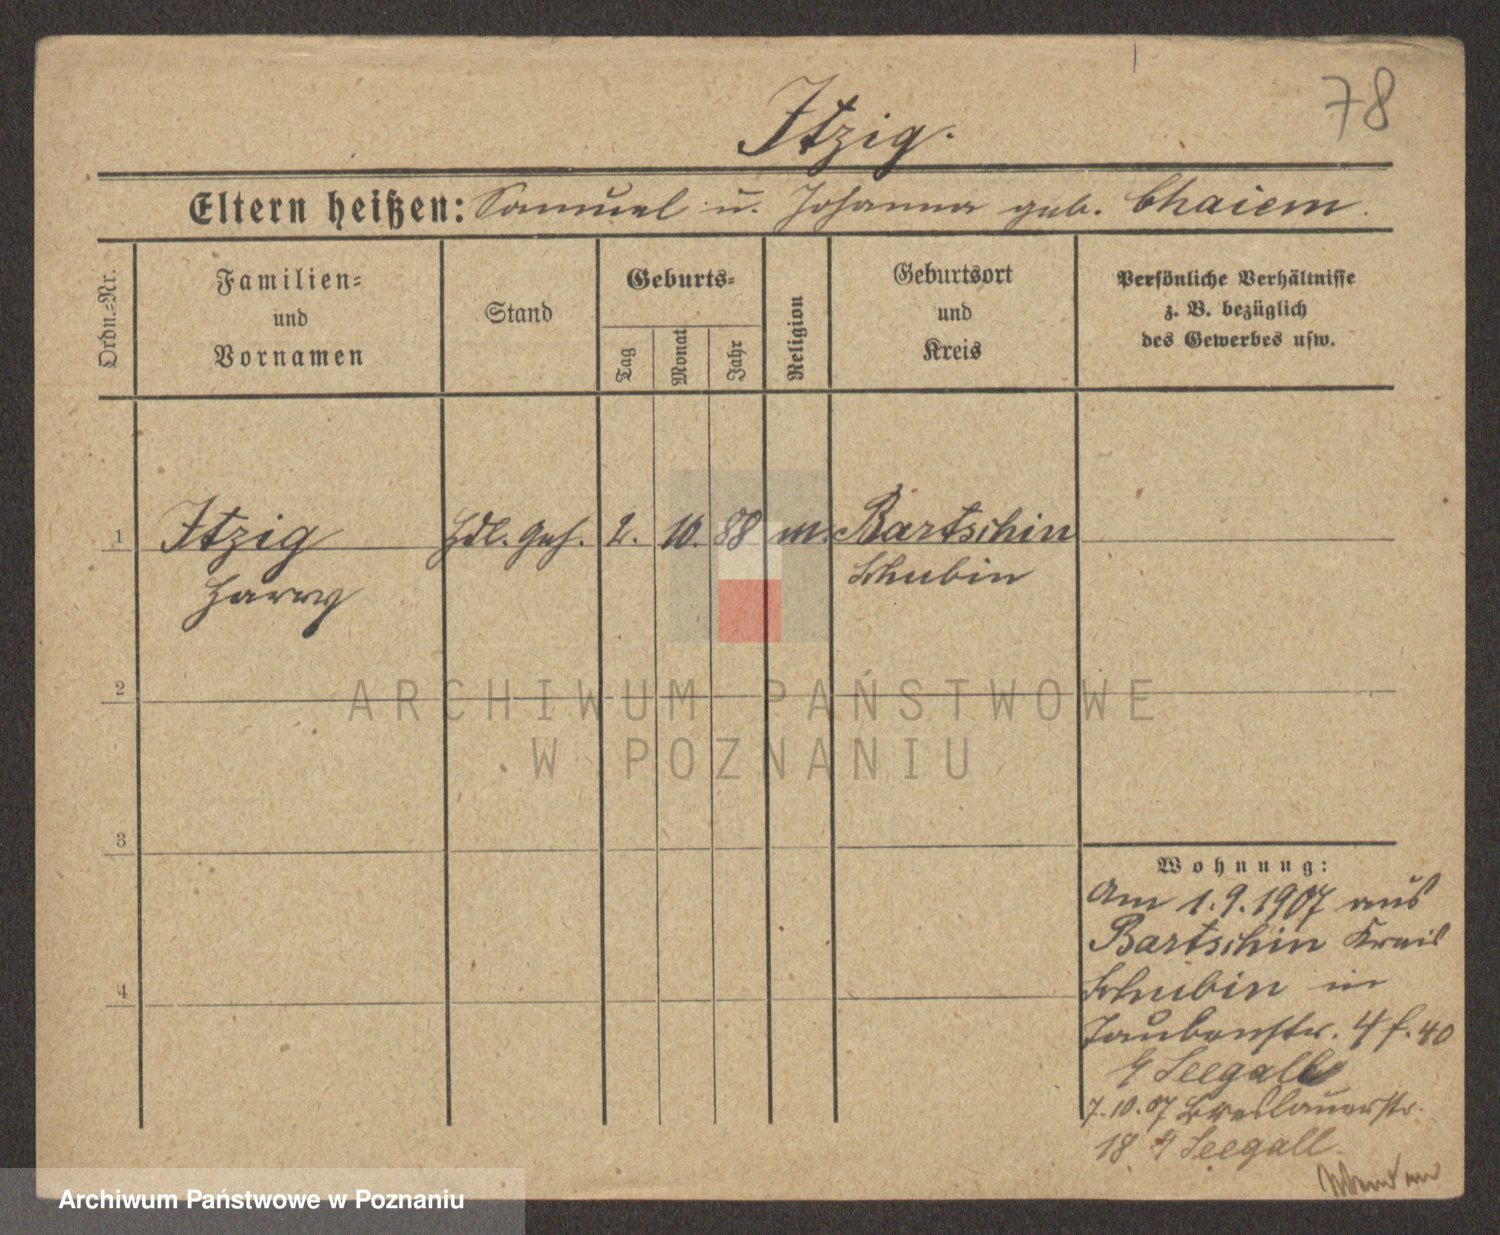 78
Itzig.
Eltern heißen: Samuel u. Johanna geb. Chaiem.
Ordn.-Nr.
Familien-
und
Vornamen
Stand
Geburts-
Tag
Monat
Jahr
Religion
Geburtsort
und
Kreis
Persönliche Verhältnisse
z. B. bezüglich
des Gewerbes usw.
1 Itzig Hdl. Geh. 2. 10. 88 m. Bartschin
Harry Schubin
2
3
4
ARCHIWUM PAŃSTWOWE
W POZNANIU
Wohnung:
Am 1.9.1907 aus
Bartschin Kreis
Schubin in
Taubenstr. 4 f. 40
Seegall
7.10.07 Breslauerstr.
18 Seegall
Archiwum Państwowe w Poznaniu